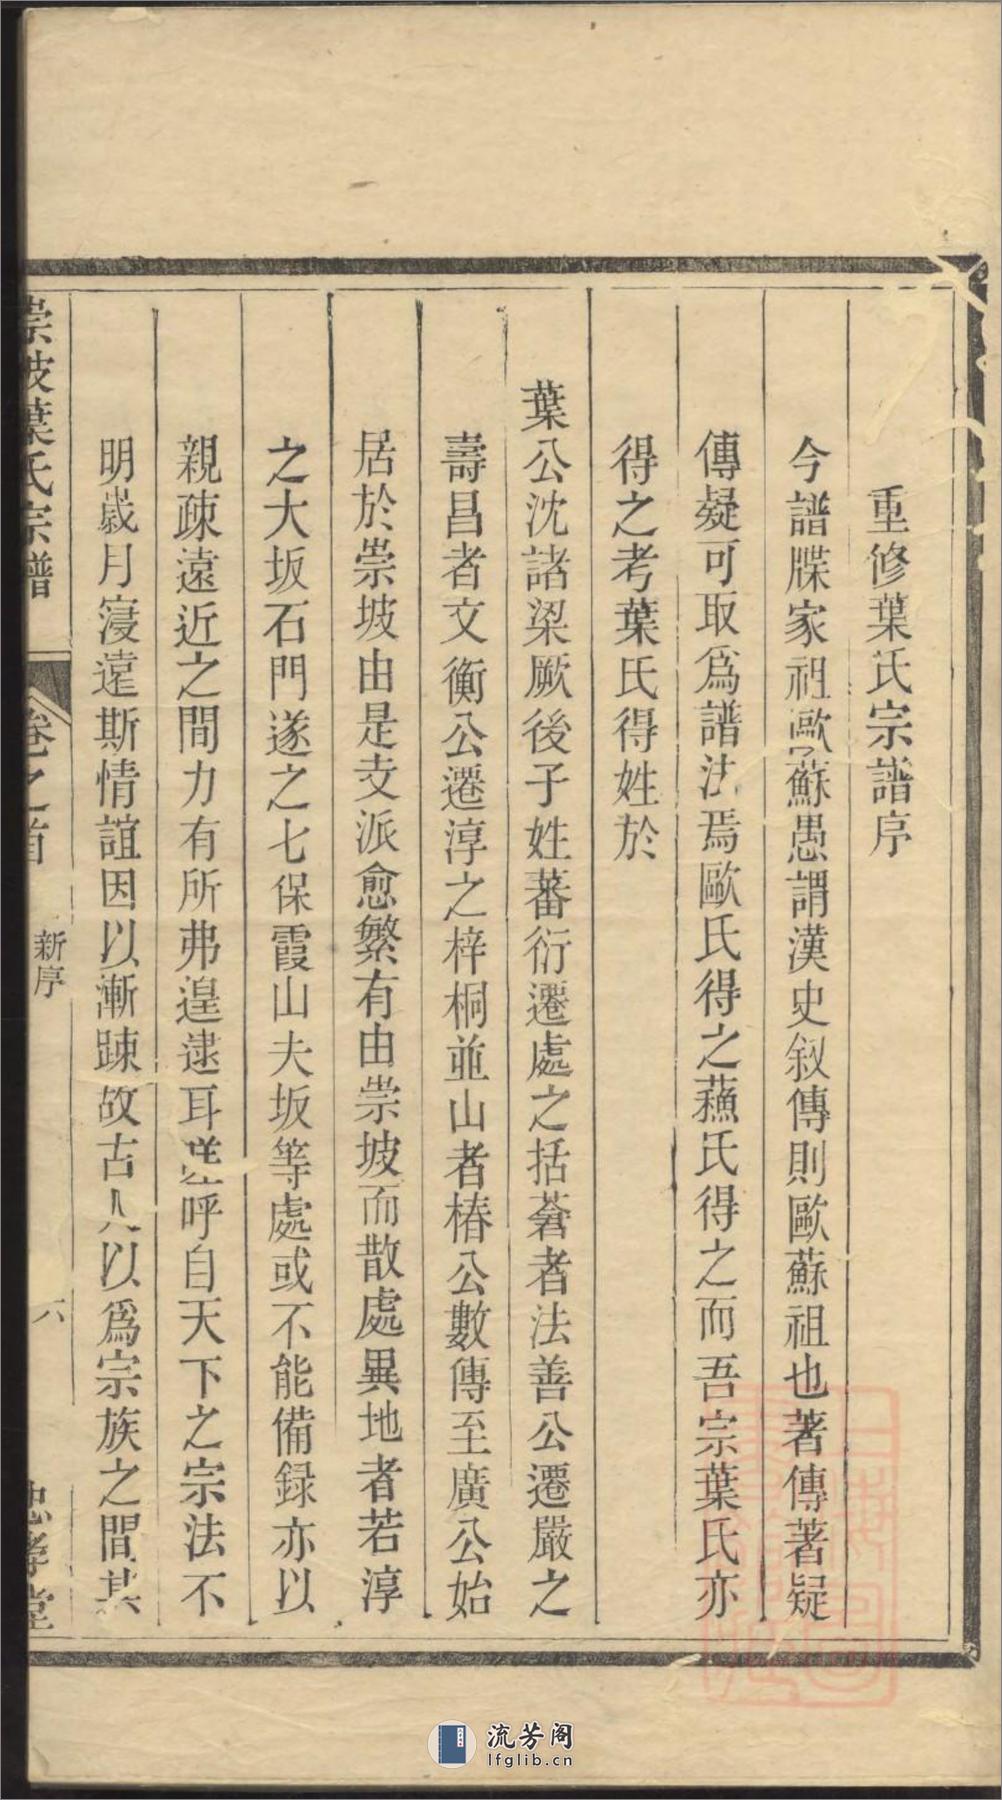 重修葉氏宗譜序
今譜牒家祖歐蘇愚謂漢史叙傳則歐蘇祖也著傳著疑
傳疑可取爲譜法焉歐氏得之蘓氏得之而吾宗葉氏亦
得之考葉氏得姓於
葉公沈諸梁厥後子姓蕃衍遷處之括蒼者法善公遷嚴之
壽昌者文衡公遷淳之梓桐並山者椿公數傳至廣公始
居於崇坡由是支派愈繁有由崇坡而散處異地者若淳
之大坂石門遂之七保霞山夫坂等處或不能備録亦以
親疎遠近之間力有所弗遑逮耳嗟呼自天下之宗法不
明歲月寖遠斯情誼因以漸踈故古人以爲宗族之間其
崇坡葉氏宗譜
卷之首
新序
六
忠孝堂
流芳阁
lfglib.cn